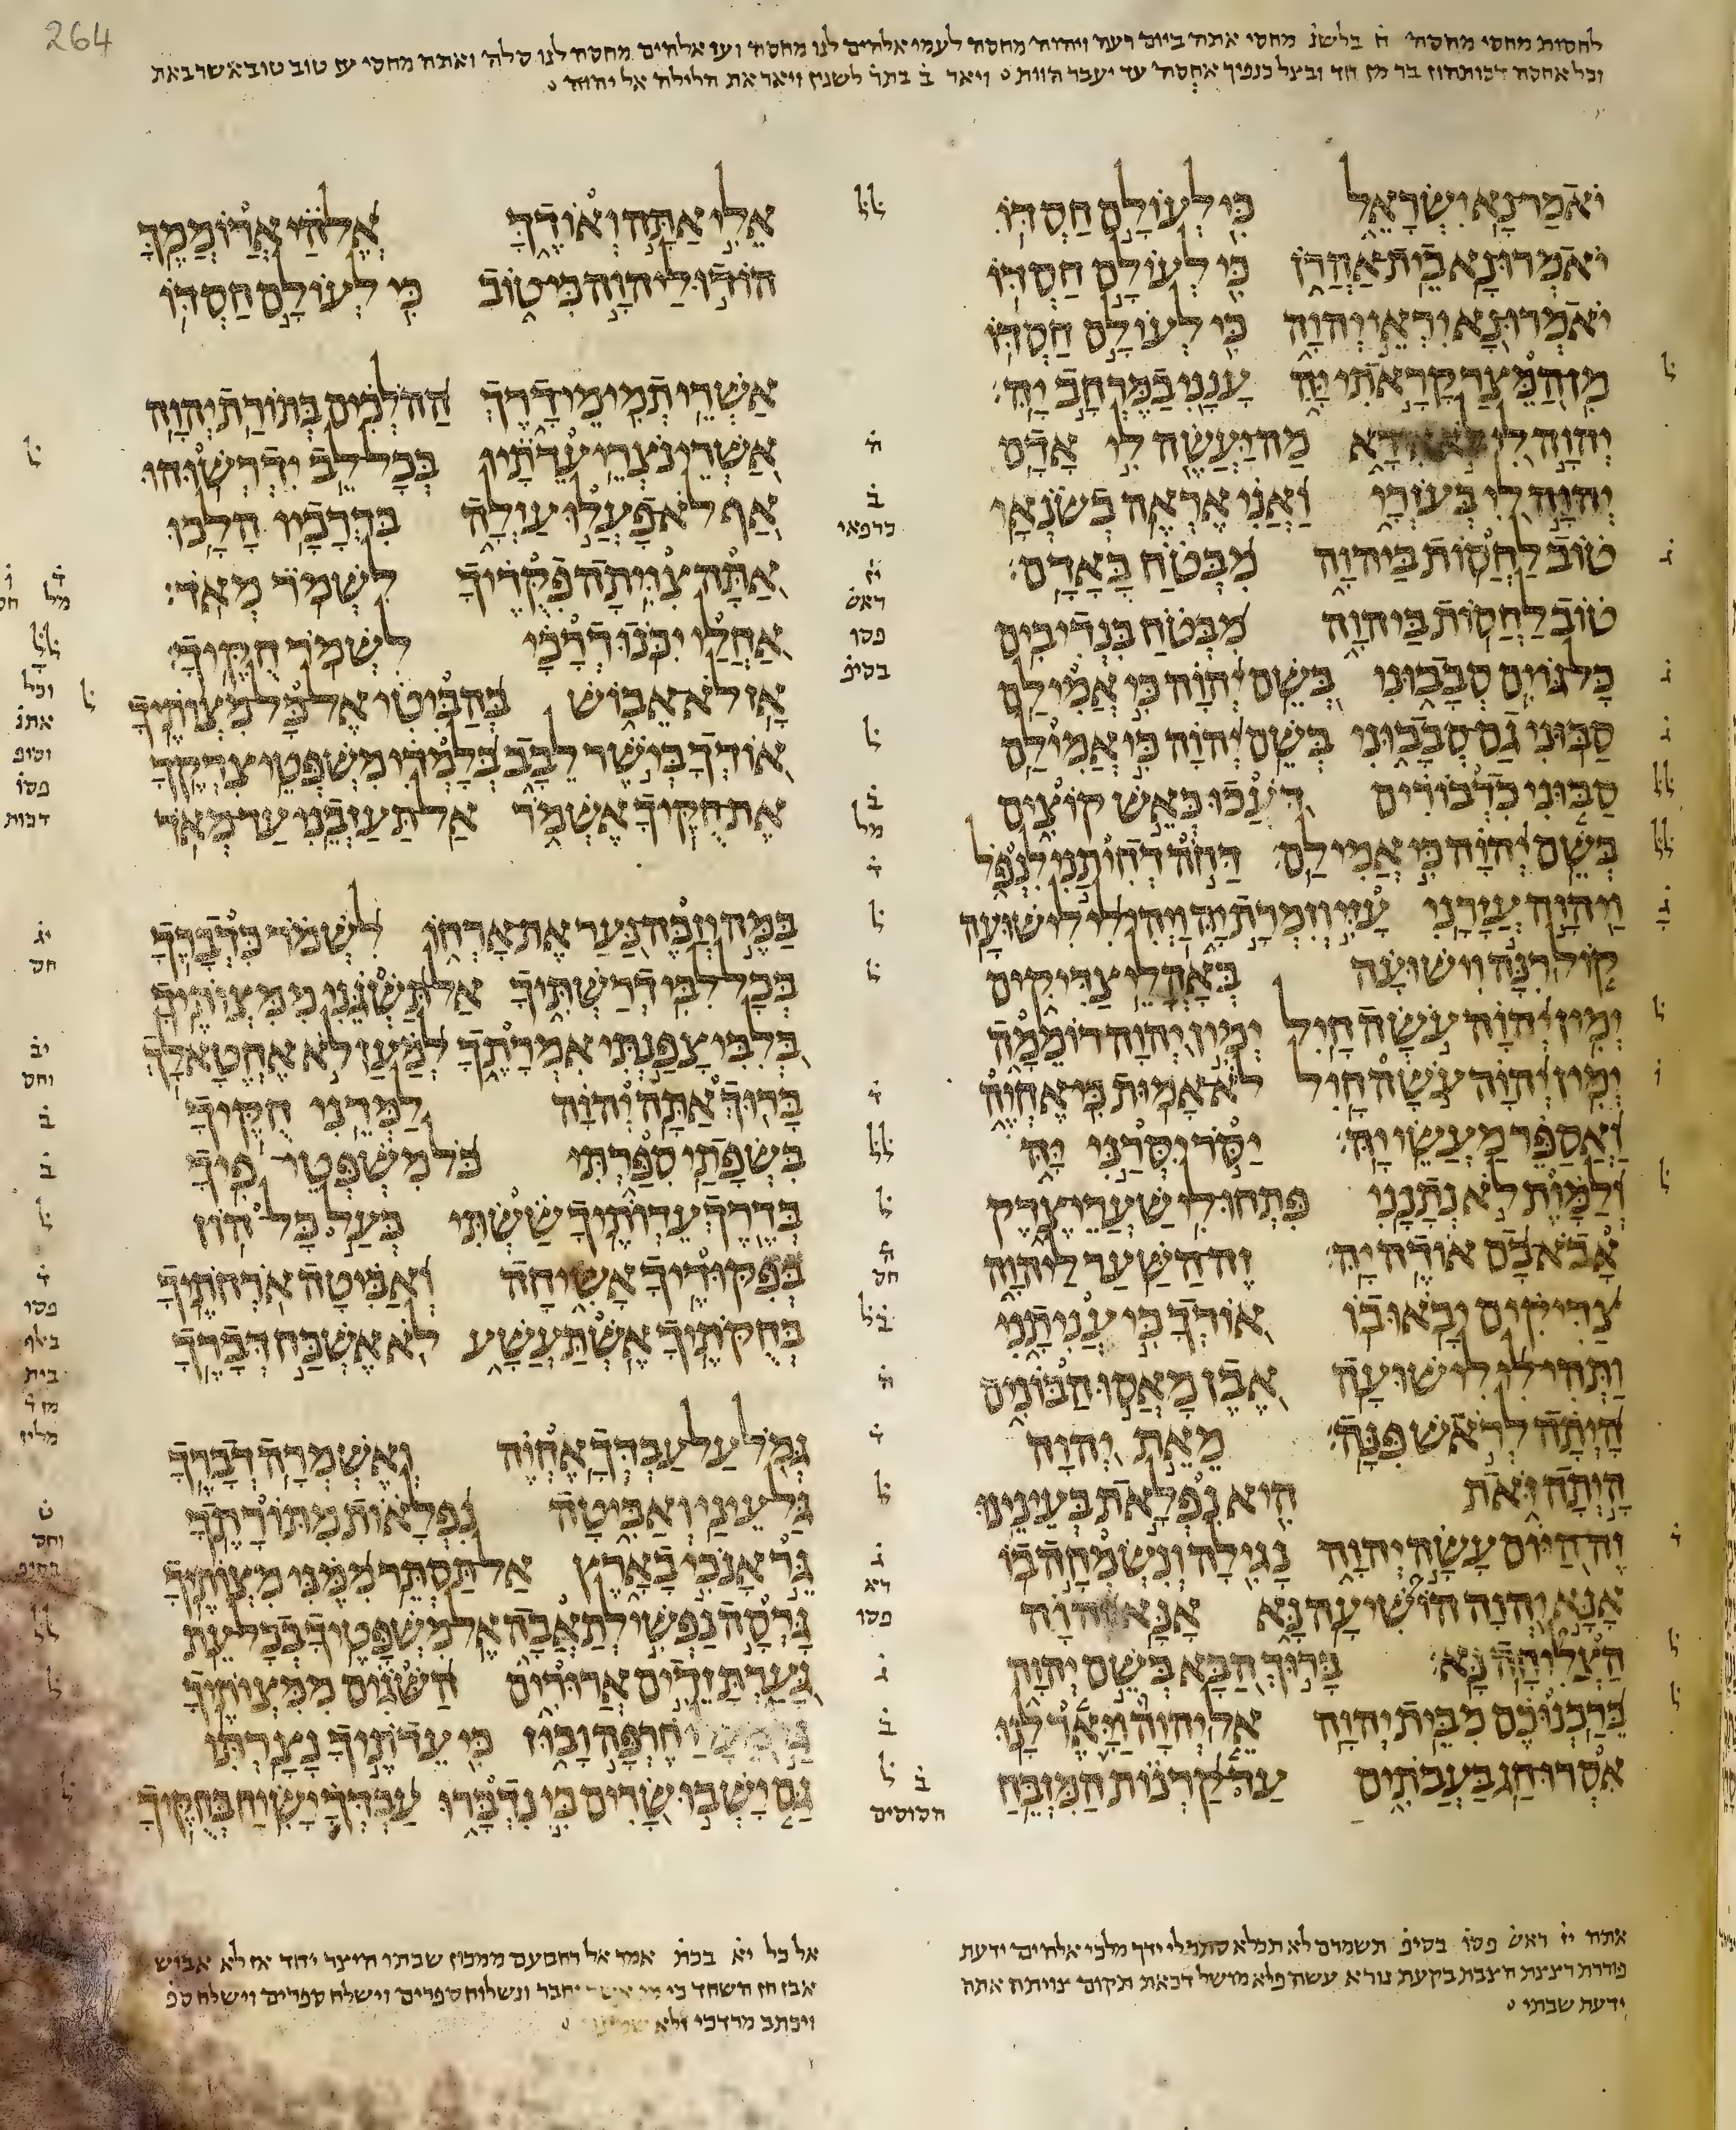 264
לחסות מחסי מחסה ח בלשנ מחסי אתה ביום רעה ויהוה מחסה לעמו אלהים לנו מחסה ועז אלהים מחסה לנו סלה ואתה מחסי עז טוב טוב אשר באת
וכל אחסה דכותהון בר מן חד ובצל כנפיך אחסה עד יעבר הוות ויאר ב בתר לשנין ויאר את הלילה אל יהוה
יֹאמַר נָא יִשְׂרָאֵל כִּי לְעוֹלָם חַסְדּוֹ
יֹאמְרוּ נָא בֵית אַהֲרֹן כִּי לְעוֹלָם חַסְדּוֹ
יֹאמְרוּ נָא יִרְאֵי יְהוָה כִּי לְעוֹלָם חַסְדּוֹ
מִן הַמֵּצַר קָרָאתִי יָּהּ עָנָנִי בַמֶּרְחָב יָהּ
יְהוָה לִי לֹא אִירָא מַה יַּעֲשֶׂה לִי אָדָם
יְהוָה לִי בְּעֹזְרָי וַאֲנִי אֶרְאֶה בְשֹׂנְאָי
טוֹב לַחֲסוֹת בַּיהוָה מִבְּטֹחַ בָּאָדָם
טוֹב לַחֲסוֹת בַּיהוָה מִבְּטֹחַ בִּנְדִיבִים
כָּל גּוֹיִם סְבָבוּנִי בְּשֵׁם יְהוָה כִּי אֲמִילַם
סַבּוּנִי גַם סְבָבוּנִי בְּשֵׁם יְהוָה כִּי אֲמִילַם
סַבּוּנִי כִדְבוֹרִים דֹּעֲכוּ כְּאֵשׁ קוֹצִים
בְּשֵׁם יְהוָה כִּי אֲמִילַם דַּחֹה דְחִיתַנִי לִנְפֹּל
וַיהוָה עֲזָרָנִי עָזִּי וְזִמְרָת יָהּ וַיְהִי לִי לִישׁוּעָה
קוֹל רִנָּה וִישׁוּעָה בְּאָהֳלֵי צַדִּיקִים
יְמִין יְהוָה עֹשָׂה חָיִל יְמִין יְהוָה רוֹמֵמָה
יְמִין יְהוָה עֹשָׂה חָיִל לֹא אָמוּת כִּי אֶחְיֶה
וַאֲסַפֵּר מַעֲשֵׂי יָהּ יַסֹּר יִסְּרַנִּי יָּהּ
וְלַמָּוֶת לֹא נְתָנָנִי פִּתְחוּ לִי שַׁעֲרֵי צֶדֶק
אָבֹא בָם אוֹדֶה יָהּ זֶה הַשַּׁעַר לַיהוָה
צַדִּיקִים יָבֹאוּ בוֹ אוֹדְךָ כִּי עֲנִיתָנִי
וַתְּהִי לִי לִישׁוּעָה אֶבֶן מָאֲסוּ הַבּוֹנִים
הָיְתָה לְרֹאשׁ פִּנָּה מֵאֵת יְהוָה
הָיְתָה זֹּאת הִיא נִפְלָאת בְּעֵינֵינוּ
זֶה הַיּוֹם עָשָׂה יְהוָה נָגִילָה וְנִשְׂמְחָה בוֹ
אָנָּא יְהוָה הוֹשִׁיעָה נָּא אָנָּא יְהוָה
הַצְלִיחָה נָּא בָּרוּךְ הַבָּא בְּשֵׁם יְהוָה
בֵּרַכְנוּכֶם מִבֵּית יְהוָה אֵל יְהוָה וַיָּאֶר לָנוּ
אִסְרוּ חַג בַּעֲבֹתִים עַד קַרְנוֹת הַמִּזְבֵּחַ
אֵלִי אַתָּה וְאוֹדֶךָּ אֱלֹהַי אֲרוֹמְמֶךָּ
הוֹדוּ לַיהוָה כִּי טוֹב כִּי לְעוֹלָם חַסְדּוֹ
אַשְׁרֵי תְמִימֵי דָרֶךְ הַהֹלְכִים בְּתוֹרַת יְהוָה
אַשְׁרֵי נֹצְרֵי עֵדֹתָיו בְּכָל לֵב יִדְרְשׁוּהוּ
אַף לֹא פָעֲלוּ עַוְלָה בִּדְרָכָיו הָלָכוּ
אַתָּה צִוִּיתָה פִקֻּדֶיךָ לִשְׁמֹר מְאֹד
אַחֲלַי יִכֹּנוּ דְרָכָי לִשְׁמֹר חֻקֶּיךָ
אָז לֹא אֵבוֹשׁ בְּהַבִּיטִי אֶל כָּל מִצְוֹתֶיךָ
אוֹדְךָ בְּיֹשֶׁר לֵבָב בְּלָמְדִי מִשְׁפְּטֵי צִדְקֶךָ
אֶת חֻקֶּיךָ אֶשְׁמֹר אַל תַּעַזְבֵנִי עַד מְאֹד
בַּמֶּה יְזַכֶּה נַּעַר אֶת אָרְחוֹ לִשְׁמֹר כִּדְבָרֶךָ
בְּכָל לִבִּי דְרַשְׁתִּיךָ אַל תַּשְׁגֵּנִי מִמִּצְוֹתֶיךָ
בְּלִבִּי צָפַנְתִּי אִמְרָתֶךָ לְמַעַן לֹא אֶחֱטָא לָךְ
בָּרוּךְ אַתָּה יְהוָה לַמְּדֵנִי חֻקֶּיךָ
בִּשְׂפָתַי סִפַּרְתִּי כֹּל מִשְׁפְּטֵי פִיךָ
בְּדֶרֶךְ עֵדְוֹתֶיךָ שַׂשְׂתִּי כְּעַל כָּל הוֹן
בְּפִקּוּדֶיךָ אָשִׂיחָה וְאַבִּיטָה אֹרְחֹתֶיךָ
בְּחֻקֹּתֶיךָ אֶשְׁתַּעֲשָׁע לֹא אֶשְׁכַּח דְּבָרֶךָ
גְּמֹל עַל עַבְדְּךָ אֶחְיֶה וְאֶשְׁמְרָה דְבָרֶךָ
גַּל עֵינַי וְאַבִּיטָה נִפְלָאוֹת מִתּוֹרָתֶךָ
גֵּר אָנֹכִי בָאָרֶץ אַל תַּסְתֵּר מִמֶּנִּי מִצְוֹתֶיךָ
גָּרְסָה נַפְשִׁי לְתַאֲבָה אֶל מִשְׁפָּטֶיךָ בְכָל עֵת
גָּעַרְתָּ זֵדִים אֲרוּרִים הַשֹּׁגִים מִמִּצְוֹתֶיךָ
חֶרְפָּה וָבוּז כִּי עֵדֹתֶיךָ נָצָרְתִּי
גַּם יָשְׁבוּ שָׂרִים בִּי נִדְבָּרוּ עַבְדְּךָ יָשִׂיחַ בְּחֻקֶּיךָ
אתה יז ראש פסו בסיפ תשמרם לא תכלא סתמלי ידך מלכי אלהים ידעת
פוררת רצצת הצבת בקעת נורא עשה פלא מושל דכאת תקום צויתה אתה
ידעת שבתי
אל כל יא בכת אמר אל רחבעם ממכון שבתו היצר יחד אז לא אבוש
אבז חז השחד כי יחבר ונשלוח ספרים וישלח ספרים וישלח ספ
ויכתב מרדכי ולא